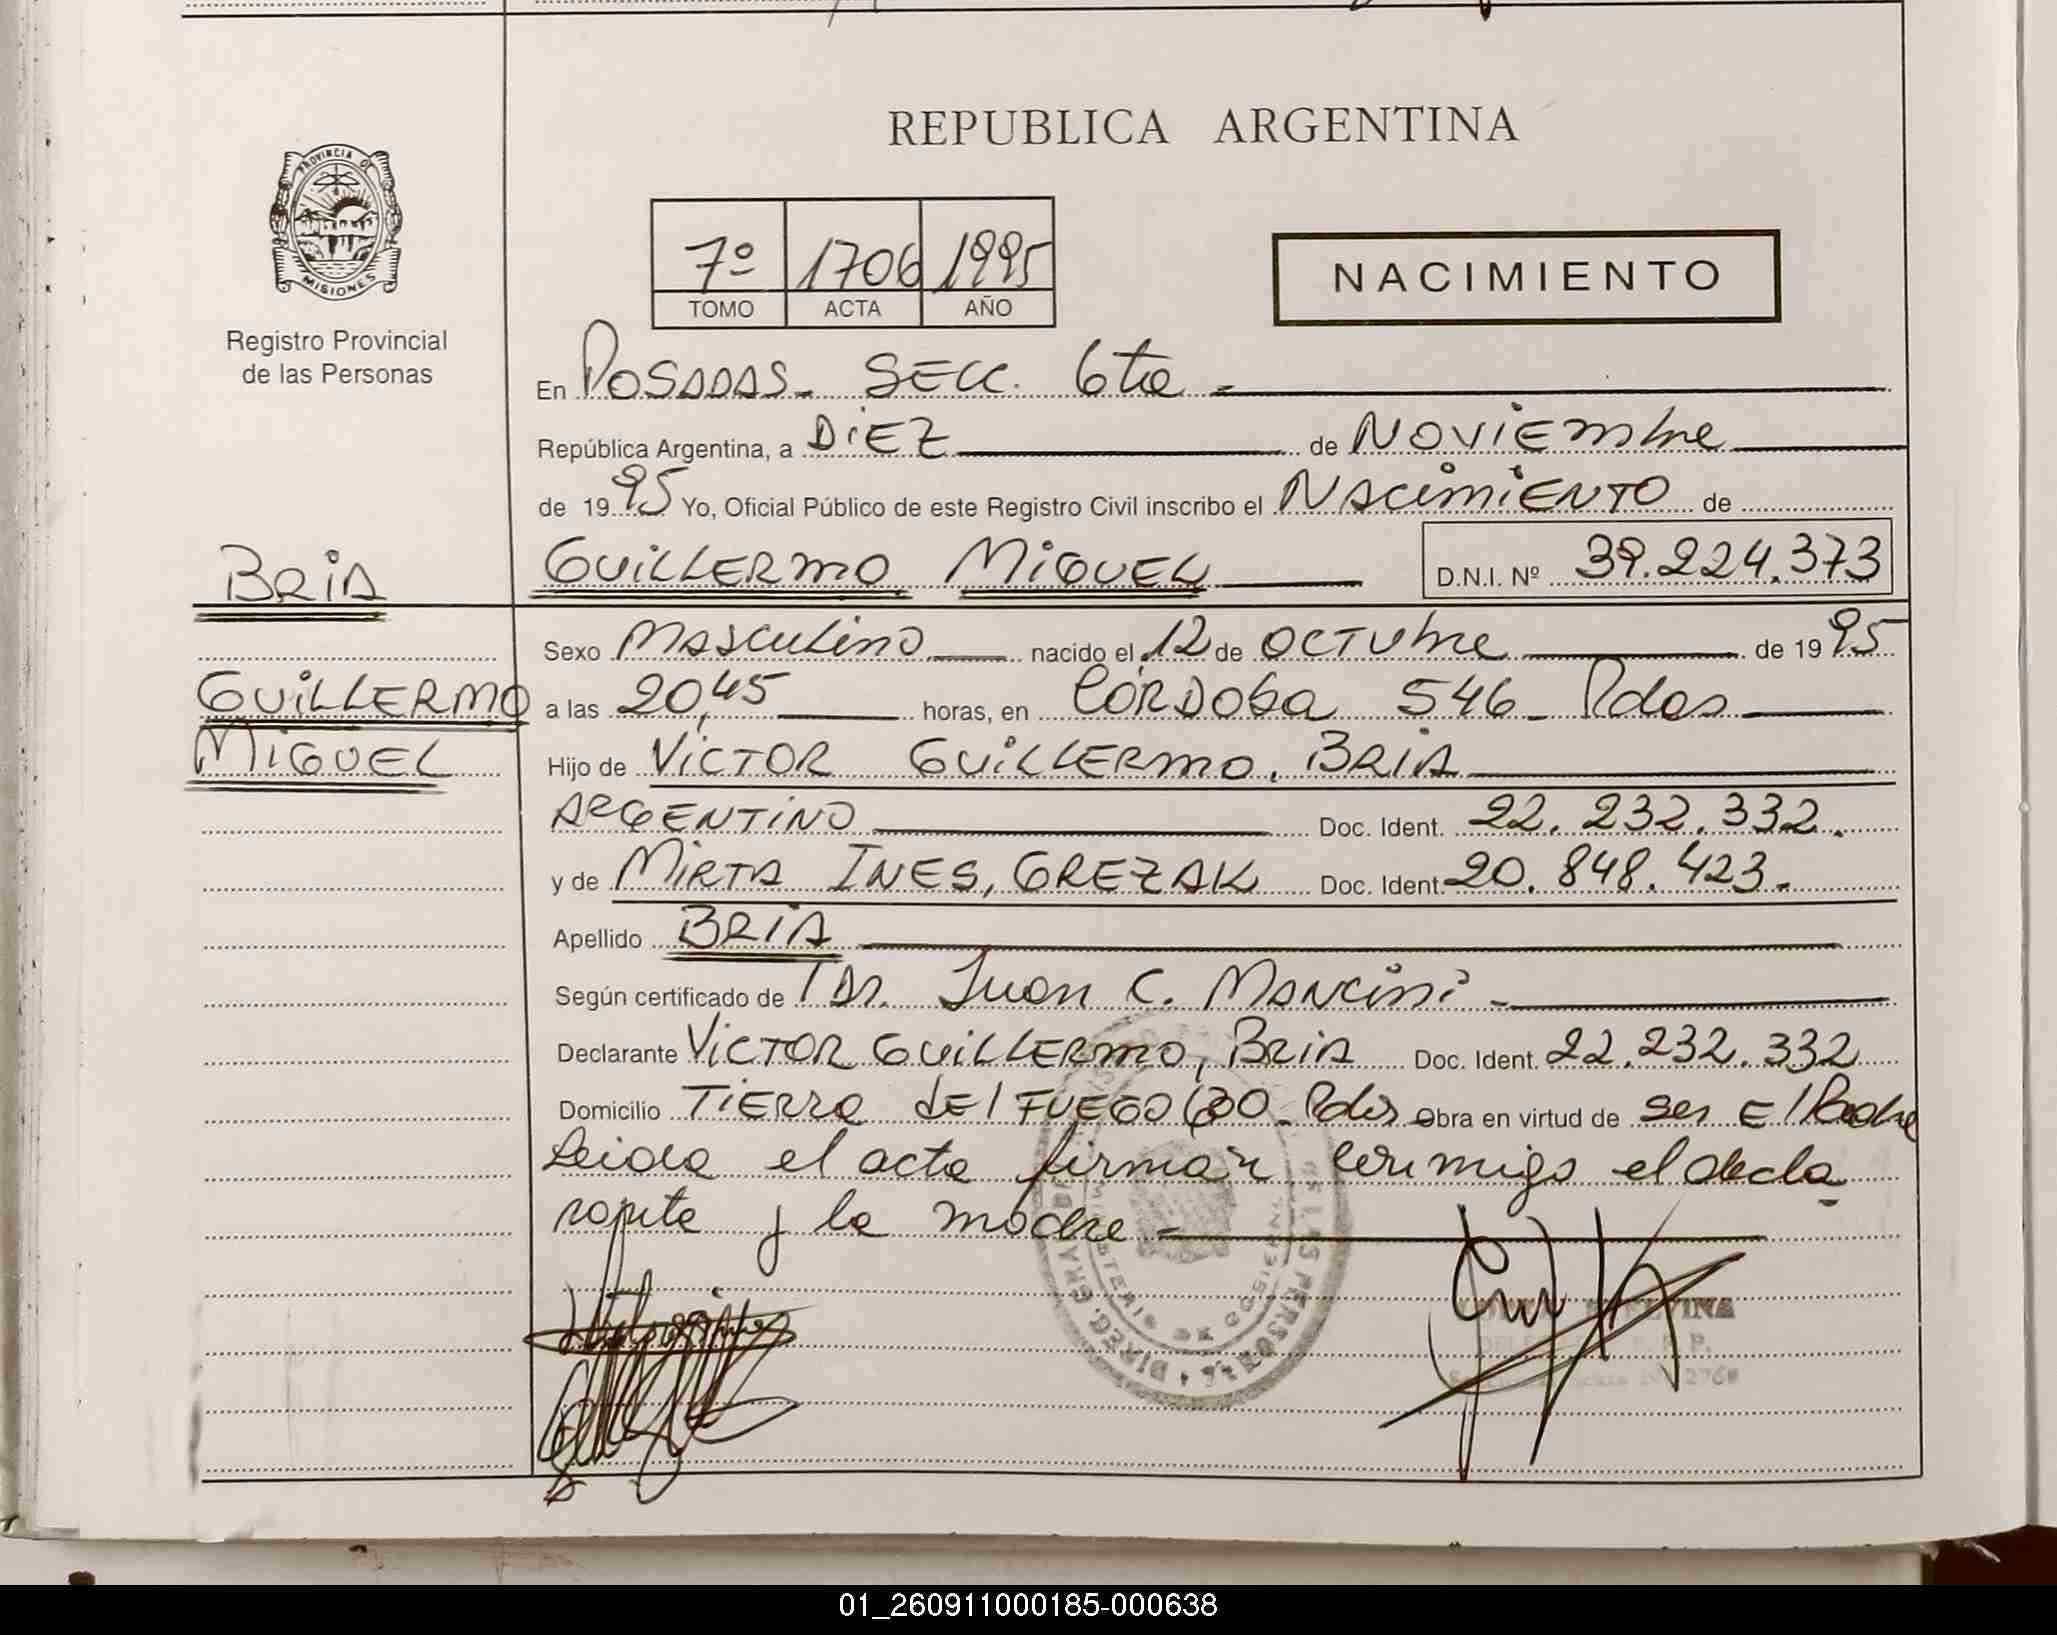 REPUBLICA ARGENTINA
PROVINCIA DE
MISIONES
Registro Provincial
de las Personas
7º 1706 1995
TOMO ACTA AÑO
NACIMIENTO
En POSADAS- SECC. 6ta -
República Argentina, a DIEZ de NOVIEMbre
de 1995 Yo, Oficial Público de este Registro Civil inscribo el NACIMIENTO de
BRIA
GUILLERMO MIGUEL D.N.I. Nº 39.224.373
Sexo MASCULINO nacido el 12 de OCTUbre de 1995
GUILLERMO
a las 20,45 horas, en CÓRDOBA 546- Pdas
MIGUEL
Hijo de VICTOR GUILLERMO, BRIA
ARGENTINO Doc. Ident. 22.232.332.
y de MIRTA INES, GREZAK Doc. Ident. 20.848.423.
Apellido BRIA
Según certificado de Dr. Juan C. Mancini -
Declarante VICTOR GUILLERMO, BRIA Doc. Ident. 22.232.332
Domicilio TIERRA dEl FUEGO Pdas Obra en virtud de ser El Padre
Leida el acta firman conmigo el decla
rante y la madre -
DIREG. GRAL. DE LAS PERSONAS
MINISTERIO DE GOBIERNO
01_260911000185-000638